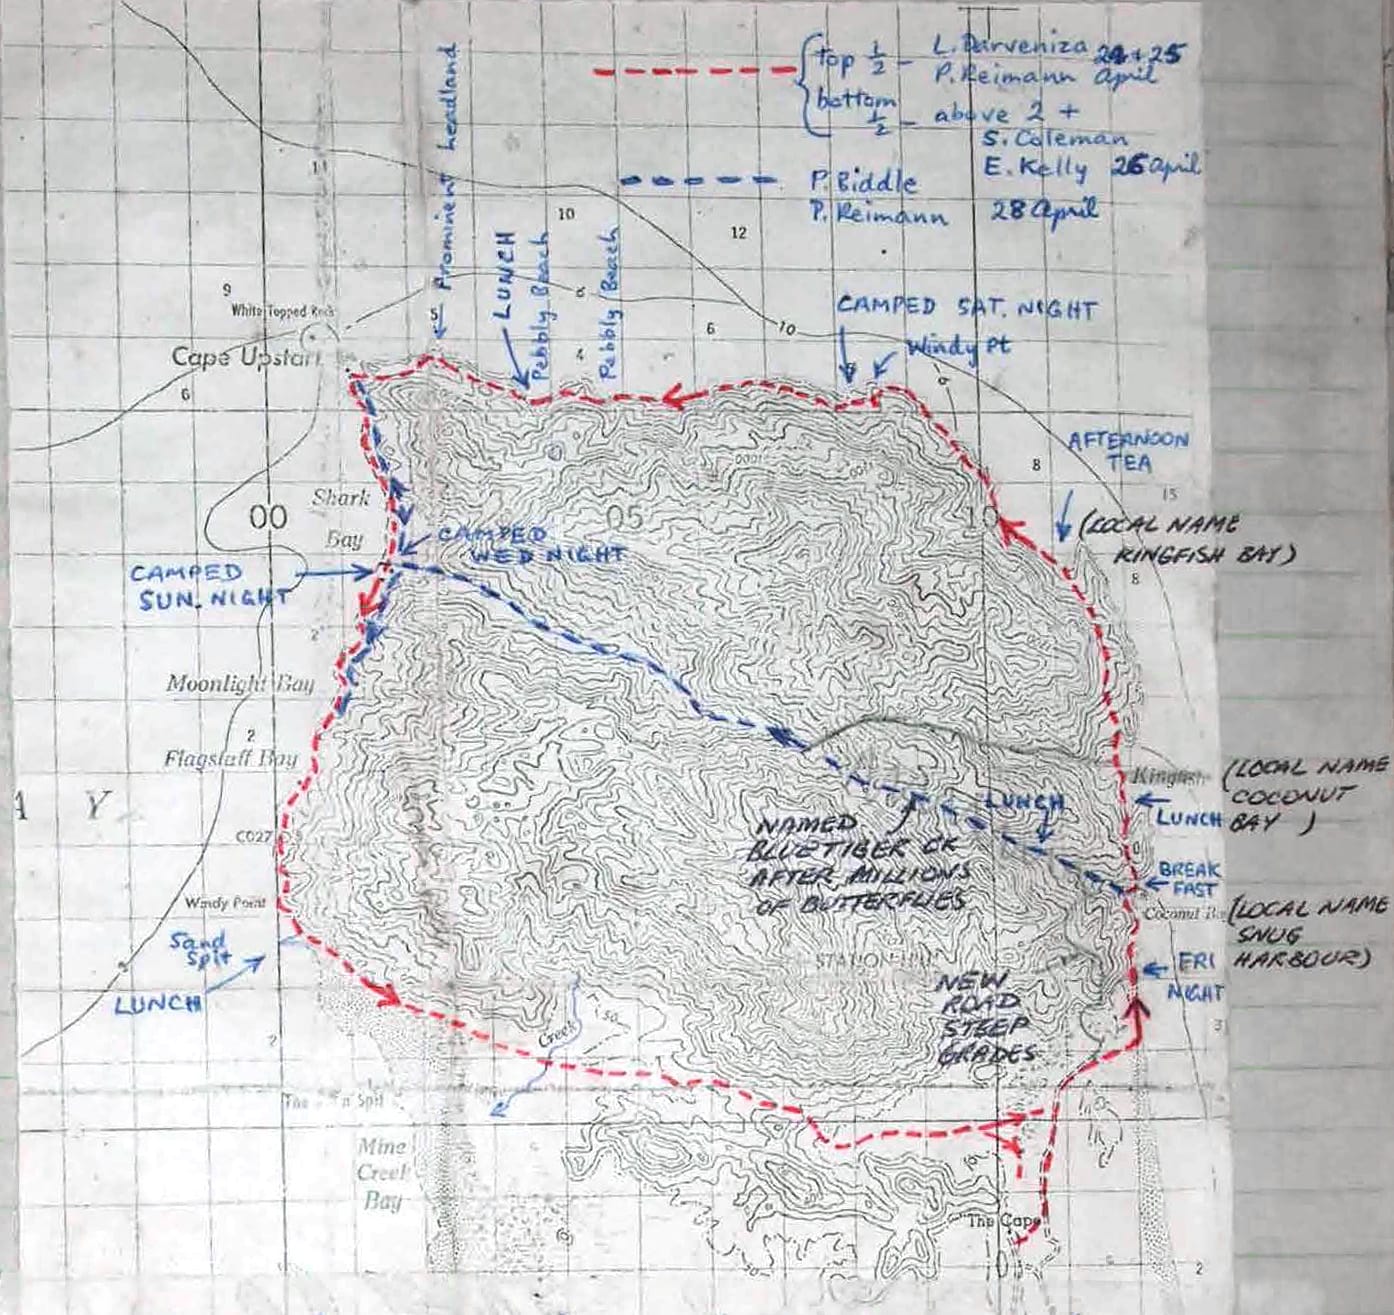 top 1/2 - L. Darveniza 24 + 25
P. Reimann April
bottom 1/2 - above 2 +
S. Coleman
E. Kelly 26 April
P. Biddle
P. Reimann 28 April
Prominent headland
11
10
12
9
White Topped Rock
5
LUNCH
Pebbly Beach
Pebbly Beach
6
10
4
CAMPED SAT. NIGHT
Windy Pt
Cape Upstart
6
AFTERNOON
TEA
8
15
Shark
Bay
00
05
10
(LOCAL NAME
KINGFISH BAY)
8
CAMPED
WED NIGHT
CAMPED
SUN. NIGHT
2
Moonlight Bay
2
Flagstaff Bay
A Y
Kingfish
(LOCAL NAME
COCONUT
BAY )
LUNCH
LUNCH
CO27
NAMED
BLUE TIGER CK
AFTER MILLIONS
OF BUTTERFLIES
BREAK
FAST
Windy Point
Coconut
(LOCAL NAME
SNUG
HARBOUR)
Sand
Spit
LUNCH
STATION HILL
FRI
NIGHT
NEW
ROAD
STEEP
GRADES
Creek
50
3
2
The
Spit
Mine
Creek
Bay
The Cape
2